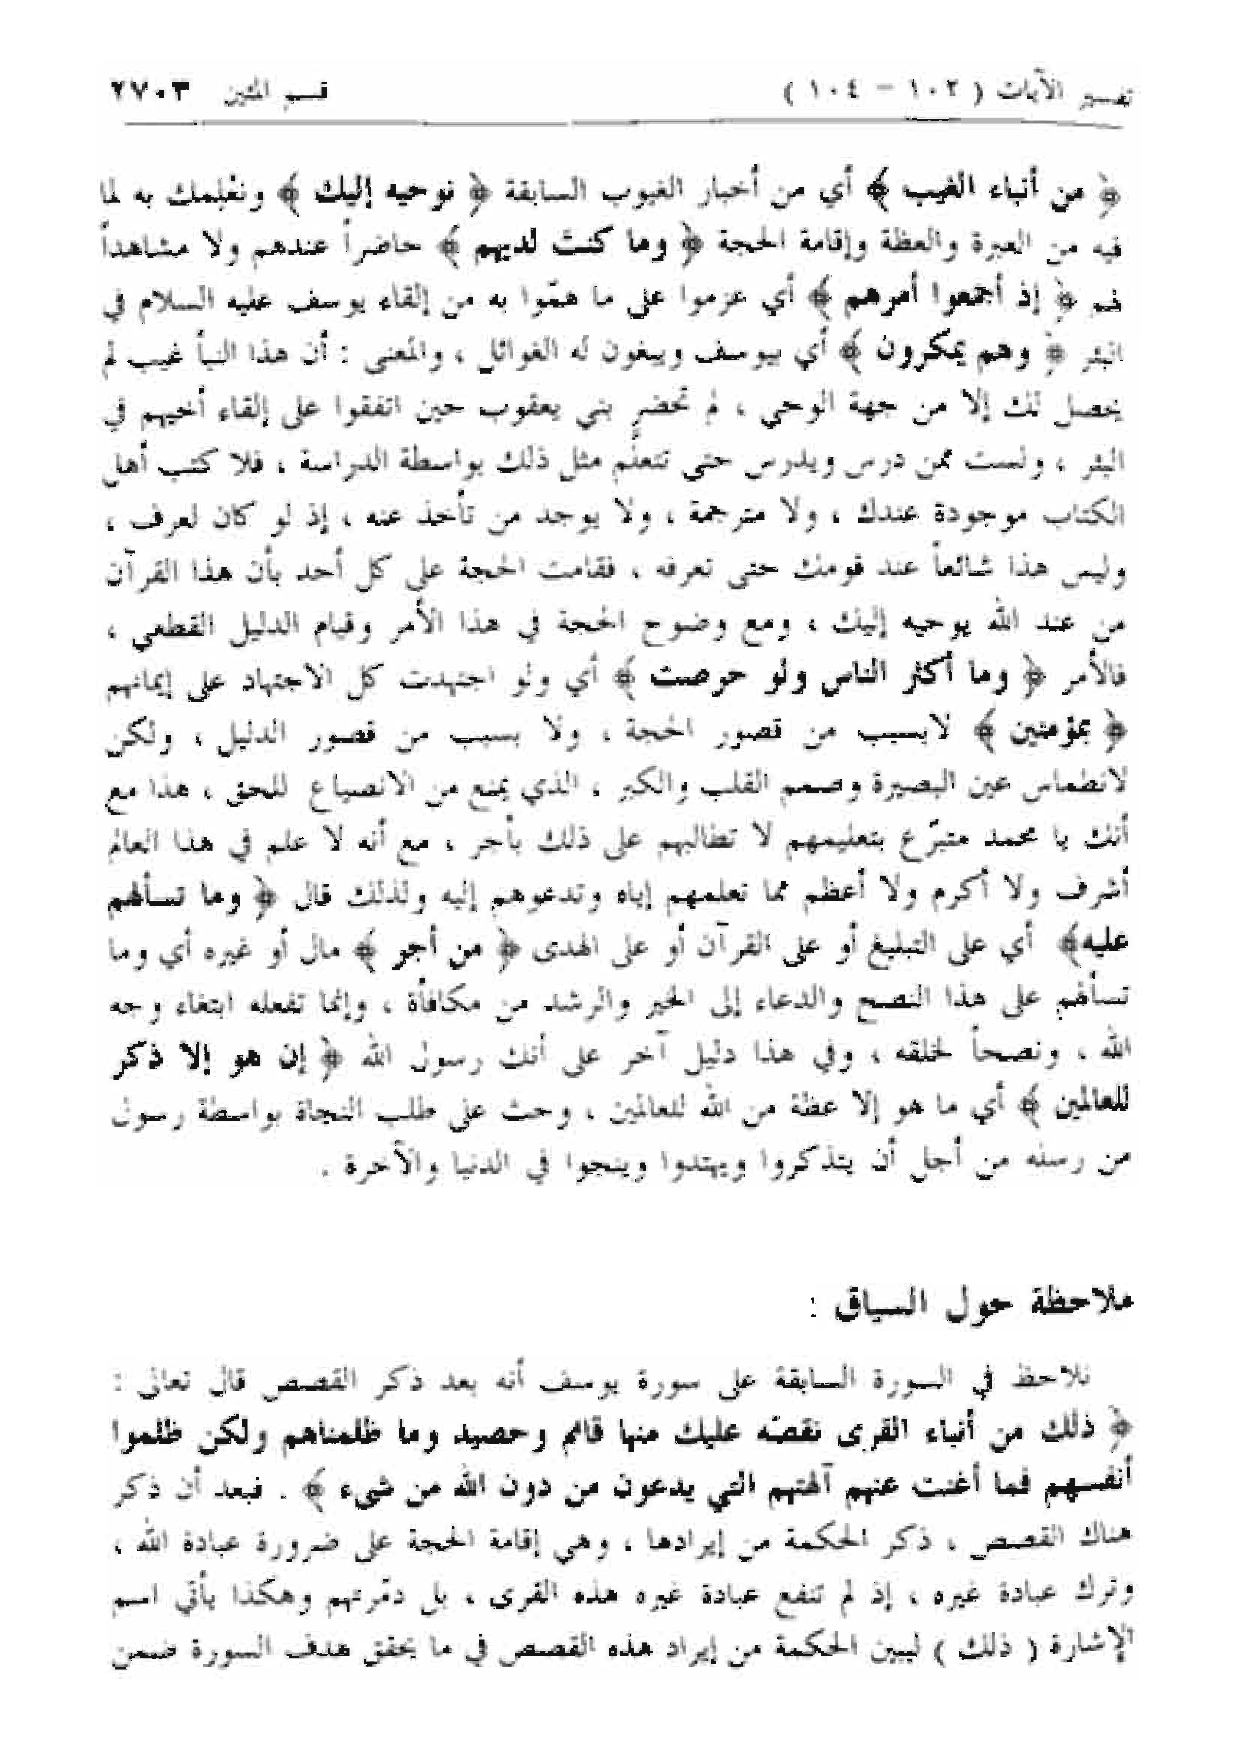 تفسير الآيات ( ١٠٢ – ١٠٤ ) قسم المئين ٢٧٠٣
﴿ من أنباء الغيب ﴾ أي من أخبار الغيوب السابقة ﴿ نوحيه إليك ﴾ ونعْلِمك به لما
فيه من العبرة والعظة وإقامة الحجة ﴿ وما كنت لديهم ﴾ حاضراً عندهم ولا مشاهداً
لهم ﴿ إذ أجمعوا أمرهم ﴾ أي عزموا على ما همّوا به من إلقاء يوسف عليه السلام في
البئر ﴿ وهم يمكرون ﴾ أي بيوسف ويبغون له الغوائل ، والمعنى : أن هذا النبأ غيب لم
يحصل لك إلا من جهة الوحي ، لم تحضر بني يعقوب حين اتفقوا على إلقاء أخيهم في
البئر ، ولست ممن درس ويدرس حتى تتعلّم مثل ذلك بواسطة الدراسة ، فلا كتب أهل
الكتاب موجودة عندك ، ولا مترجمة ، ولا يوجد من تأخذ عنه ، إذ لو كان لعرف ،
وليس هذا شائعاً عند قومك حتى تعرفه ، فقامت الحجة على كل أحد بأن هذا القرآن
من عند الله يوحيه إليك ، ومع وضوح الحجة في هذا الأمر وقيام الدليل القطعي ،
فالأمر ﴿ وما أكثر الناس ولو حرصت ﴾ أي ولو اجتهدت كل الاجتهاد على إيمانهم
﴿ بمؤمنين ﴾ لابسبب من قصور الحجة ، ولا بسبب من قصور الدليل ، ولكن
لانطماس عين البصيرة وصمم القلب والكبر ، الذي يمنع من الانصياع للحق ، هذا مع
أنك يا محمد متبرّع بتعليمهم لا تطالبهم على ذلك بأجر ، مع أنه لا علم في هذا العالم
أشرف ولا أكرم ولا أعظم مما تعلمهم إياه وتدعوهم إليه ولذلك قال ﴿ وما تسألهم
عليه﴾ أي على التبليغ أو على القرآن أو على الهدى ﴿ من أجر ﴾ مال أو غيره أي وما
تسألهم على هذا النصح والدعاء إلى الخير والرشد من مكافأة ، وإنما تفعله ابتغاء وجه
الله ، ونصحاً لخلقه ، وفي هذا دليل آخر على أنك رسول الله ﴿ إن هو إلا ذكر
للعالمين ﴾ أي ما هو إلا عظة من الله للعالمين ، وحث على طلب النجاة بواسطة رسول
من رسله من أجل أن يتذكروا ويهتدوا وينجوا في الدنيا والآخرة .
ملاحظة حول السياق :
نلاحظ في السورة السابقة على سورة يوسف أنه بعد ذكر القصص قال تعالى :
﴿ ذلك من أنباء القرى نقصّه عليك منها قائم وحصيد وما ظلمناهم ولكن ظلموا
أنفسهم فما أغنت عنهم آلهتهم التي يدعون من دون الله من شيء ﴾ . فبعد أن ذكر
هناك القصص ، ذكر الحكمة من إيرادها ، وهي إقامة الحجة على ضرورة عبادة الله ،
وترك عبادة غيره ، إذ لم تنفع عبادة غيره هذه القرى ، بل دمّرتهم وهكذا يأتي اسم
الإشارة ( ذلك ) ليبين الحكمة من إيراد هذه القصص في ما يحقق هدف السورة ضمن